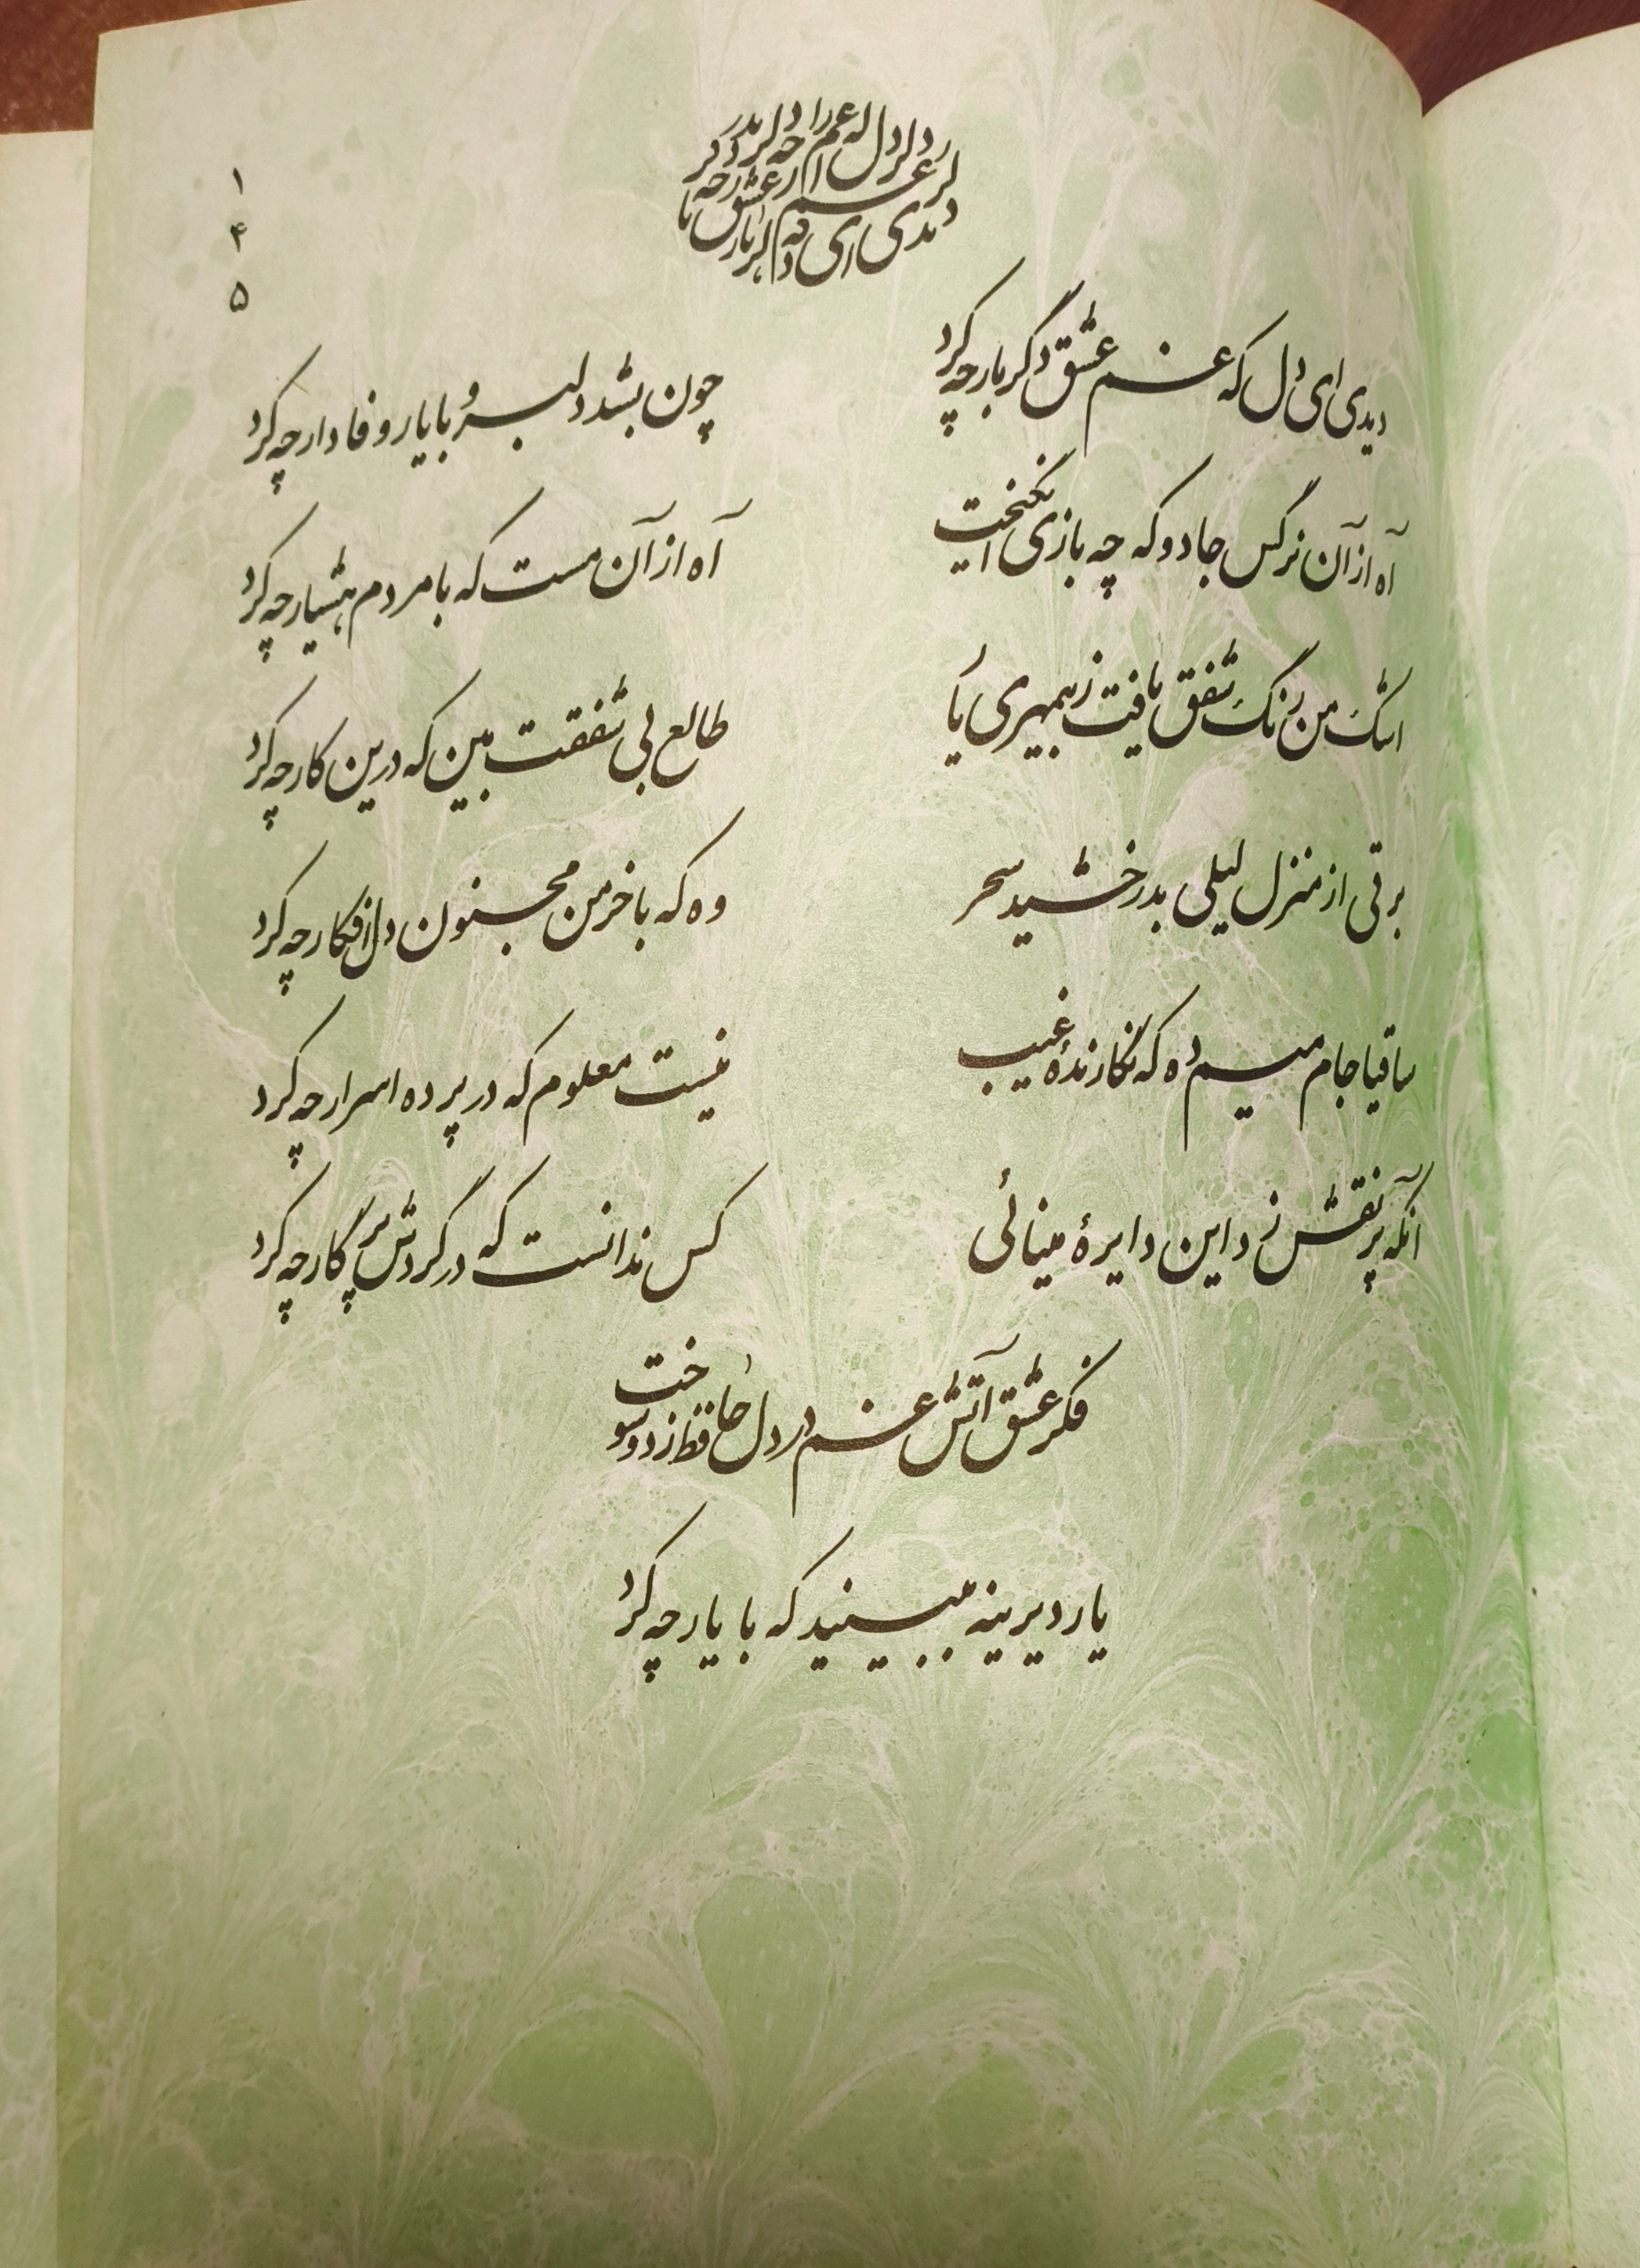 ۱۴۵
دیدی ای دل که غم عشق دگر بار چه کرد
چون بشد دلبر و با یار وفادار چه کرد
آه از آن نرگس جادو که چه بازی انگیخت
آه از آن مست که با مردم هشیار چه کرد
اشک من رنگ شفق یافت ز بیمهری یار
طالع بی شفقت بین که درین کار چه کرد
برقی از منزل لیلی بدرخشید سحر
وه که با خرمن مجنون دل افکار چه کرد
ساقیا جام میم ده که نگارندهٔ غیب
نیست معلوم که در پرده اسرار چه کرد
آنکه پر نقش زد این دایرهٔ مینائی
کس ندانست که در گردش پرگار چه کرد
فکر عشق آتش غم در دل حافظ زد و سوخت
یار دیرینه ببینید که با یار چه کرد